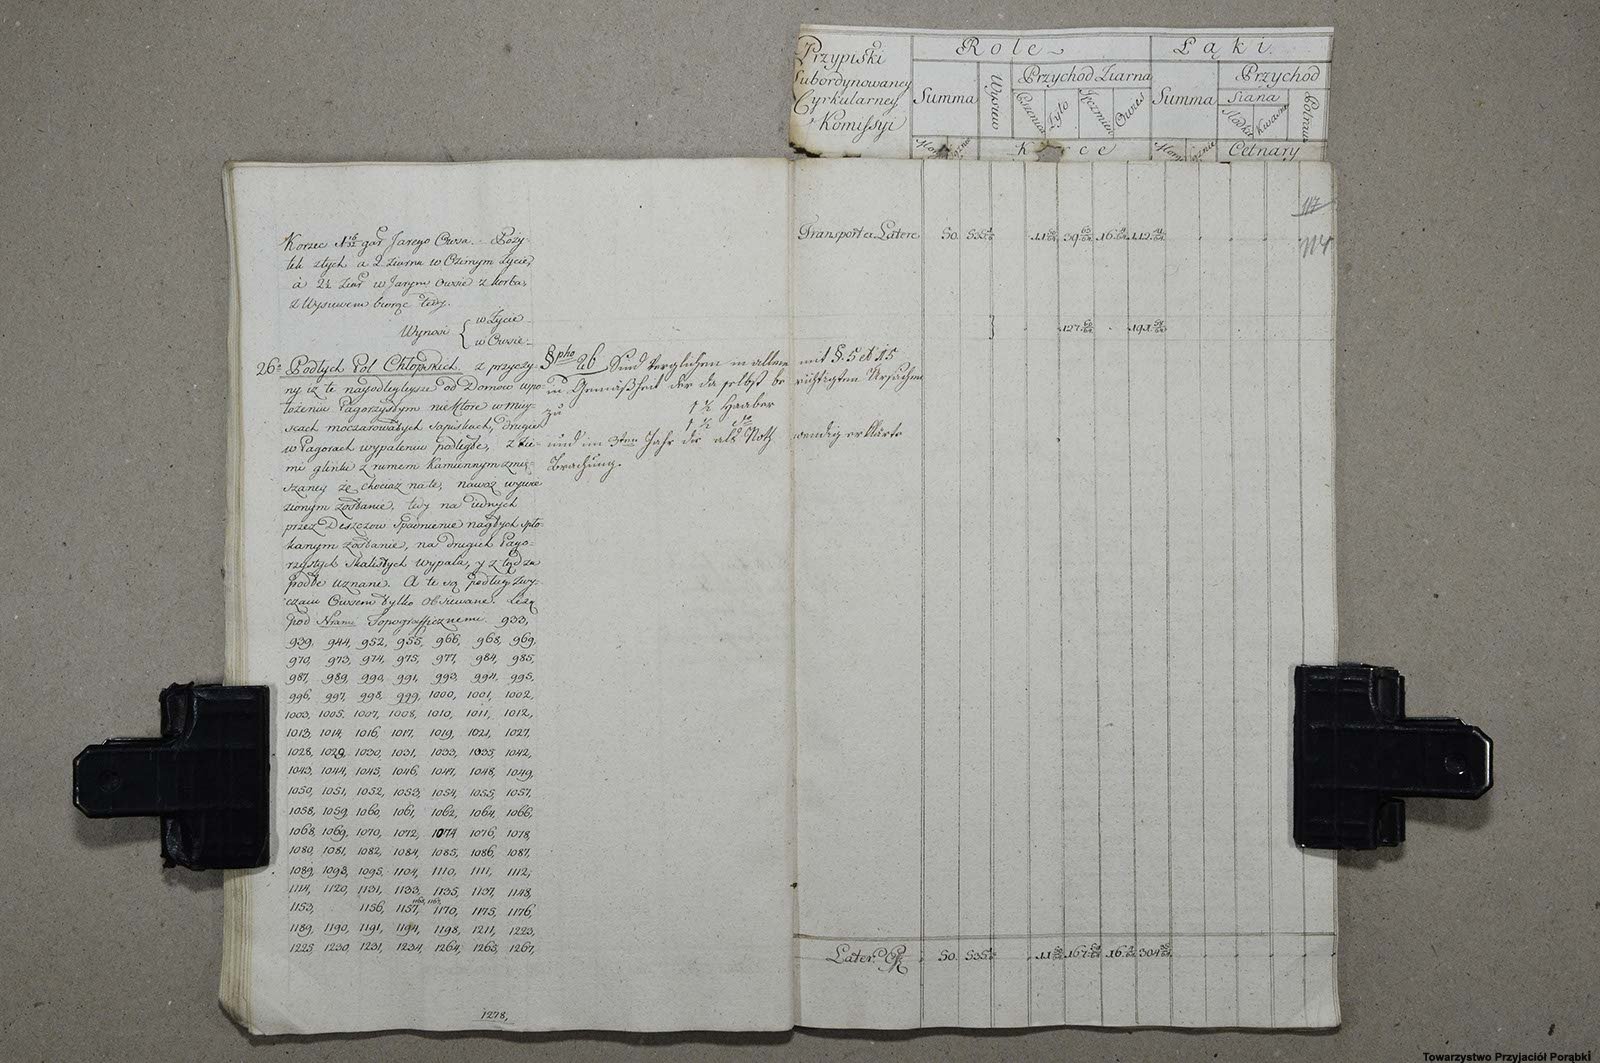 Przypiski
Subordynowaney
Cyrkularney
Komissyi
Role
Łąki
Summa
Wysiew
Przychod Ziarna
Pszenica
Żyto
Jęczmień
Owies
Summa
Przychod
Siana
Słodka
Kwaśna
Potraw
Cetnary
117
114
Korzec gar Jarego Owsa. Poży-
tek złych a 2 ziarna w Ozimym Życie,
á 2½ Ziar w Jarym Owsie z korba,
z Wysiewem biorąc
Wynosi
w Życie
w Owsie
Transport ex Latere 50. 535
127
191
26 Podłych Pol Chłopskich, z przyczy-
ny iż te nayodlegleysze od Domow w po-
łożeniu Pagorzystym niektore w miey-
scach moczarowatych sapiskach, drugie
w Pagorach wypaleniu podległe, z Zie-
mi glinki z rumem Kamiennym zmię-
szaney że chociaz na te, nawoz wywie-
zionym zostanie, tedy na iednych
przez Deszczow spadnienie nagłych spło-
kanym zostanie, na drugich Pago-
rzystych skalistych wypala, y z tąd za
podłe uznane. A te są podług zwy-
czaiu Owsem tylko obsiewane. Leżą
pod Nrami Topograficznemi 933,
§pho 26 Sind verglichen in allem mit §. 5 et 15
in Gemäßheit der da selbst be richtigten Ursachen
zu 1 ½ Haaber
1 ½ do
und im 3ten Jahr die als Noth wendig erklärte
Brachung.
939, 944, 952, 955, 966, 968, 969,
970, 973, 974, 975, 977, 984, 985,
987, 989, 990, 991, 993, 994, 995,
996, 997, 998, 999, 1000, 1001, 1002,
1003, 1005, 1007, 1008, 1010, 1011, 1012,
1013, 1014, 1016, 1017, 1019, 1021, 1027,
1028, 1029, 1030, 1031, 1033, 1035, 1042,
1043, 1044, 1045, 1046, 1047, 1048, 1049,
1050, 1051, 1052, 1053, 1054, 1055, 1057,
1058, 1059, 1060, 1061, 1062, 1064, 1066,
1068, 1069, 1070, 1072, 1074, 1076, 1078,
1080, 1081, 1082, 1084, 1085, 1086, 1087,
1089, 1093, 1095, 1104, 1110, 1111, 1112,
1114, 1120, 1131, 1133, 1135, 1137, 1148,
1153, 1156, 1157, 1170, 1175, 1176,
1189, 1190, 1191, 1194, 1198, 1211, 1223,
1225, 1230, 1231, 1234, 1264, 1265, 1267,
1278,
Later 50. 535 11 167 16 304
Towarzystwo Przyjaciół Porąbki